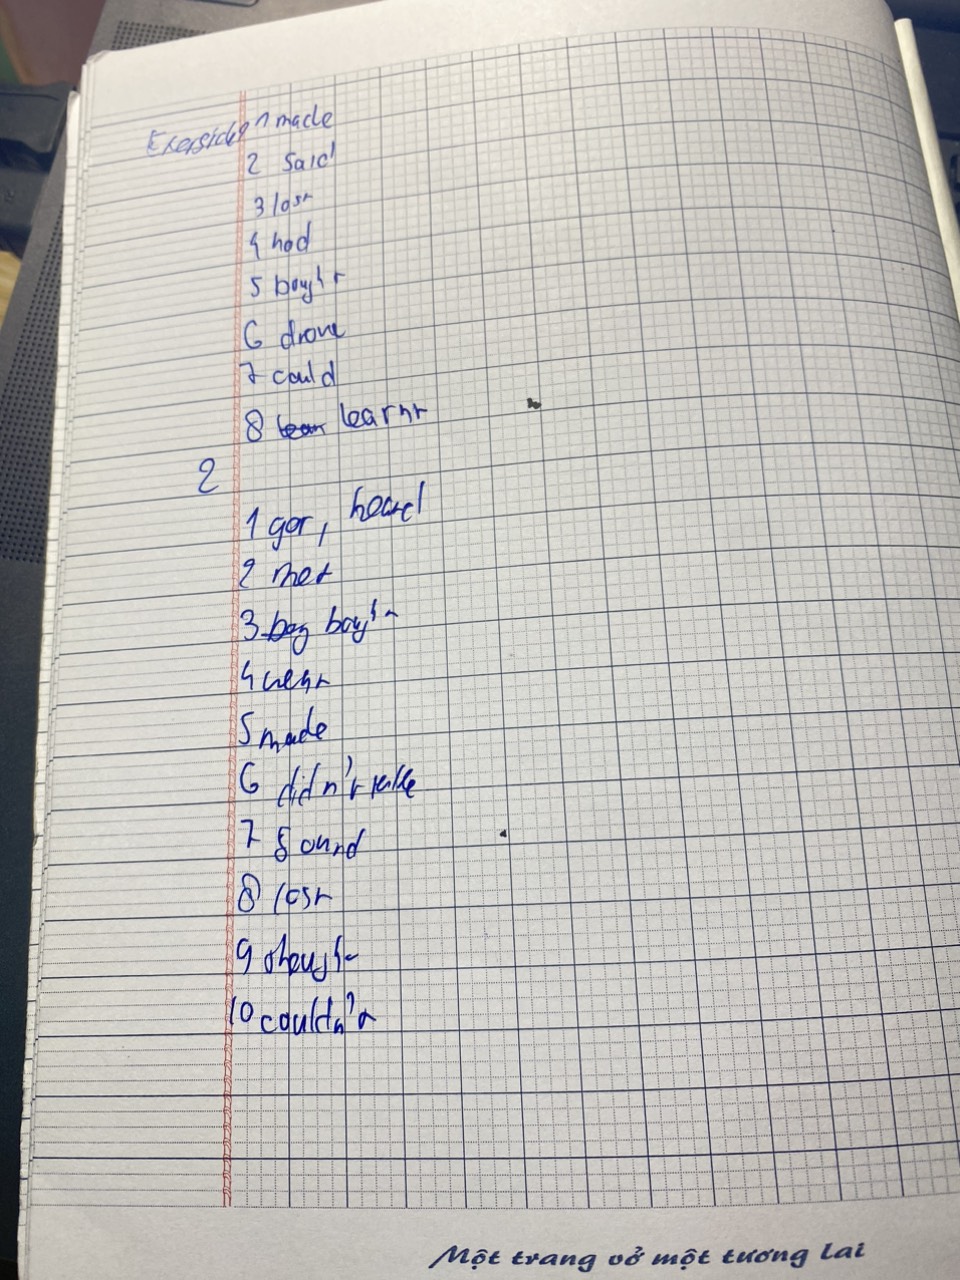 Exersiche 1 made
2 said
3 lost
4 had
5 bought
6 drove
7 could
8 lean learnt
2
1 got, heard
2 met
3 bog bought
4 went
5 made
6 didn't take
7 found
8 lost
9 thought
10 couldn't
Một trang vở một tương lai